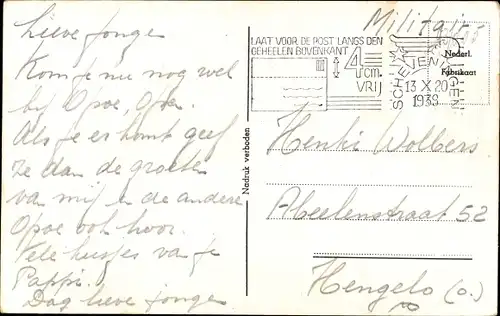 Lieve jongen
Kom je nu nog wel
bij Opoe, Opa.
Als je er komt geef
ze dan de groeten
van mij en de andere
Opoe ook hoor.
Vele kusjes van je
Pappie.
Dag lieve jongen
Nadruk verboden
Militair
LAAT VOOR DE POST LANGS DEN
GEHEELEN BOVENKANT
4 cm.
VRIJ
SCHEVENINGEN
13 X 20
1939
Nederl.
Fabrikaat
Henki Wolbers
Abeelenstraat 52
Hengelo (O.)